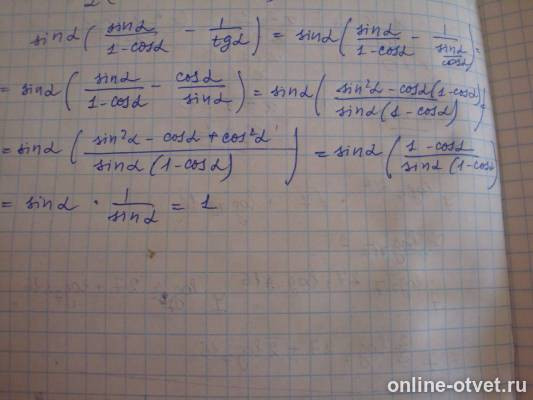 sinα ( sinα / (1-cosα) - 1 / tgα ) = sinα ( sinα / (1-cosα) - 1 / (sinα / cosα) ) =
= sinα ( sinα / (1-cosα) - cosα / sinα ) = sinα ( (sin²α - cosα(1-cosα)) / (sinα(1-cosα)) ) =
= sinα ( (sin²α - cosα + cos²α) / (sinα(1-cosα)) ) = sinα ( (1-cosα) / (sinα(1-cosα)) )
= sinα · 1 / sinα = 1
online-otvet.ru